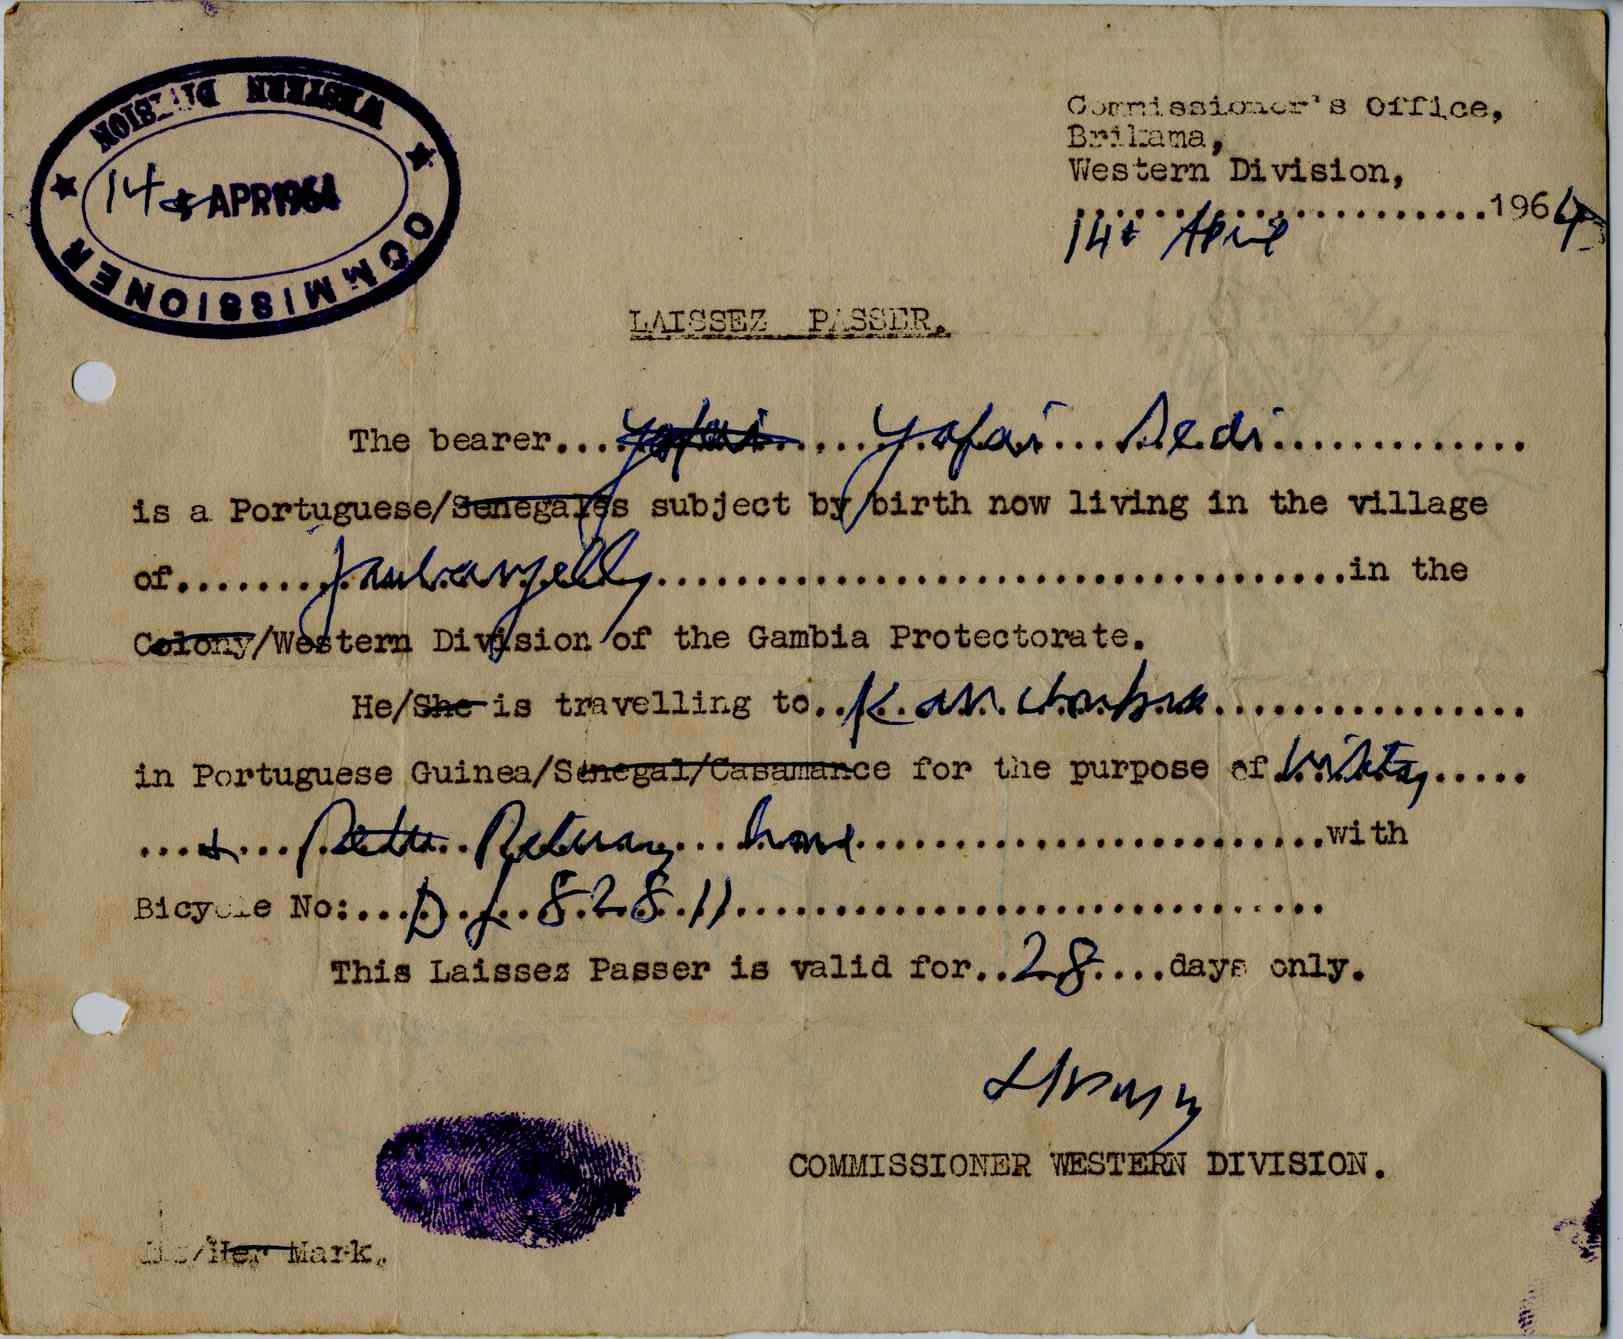 WESTERN DIVISION
14 APR 1964
COMMISSIONER
Commissioner's Office,
Brikama,
Western Division,
14th April 1964
LAISSEZ PASSER.
The bearer... Yafai ..... Yafai ... Sedi .............
is a Portuguese/Senegales subject by birth now living in the village
of........ Jambanjelly ...................................in the
Colony/Western Division of the Gambia Protectorate.
He/She is travelling to..
in Portuguese Guinea/Senegal/Casamance for the purpose of Visiting .....
....&... Returning ... home ........................with
Bicycle No:... D L 82811 ..............................
This Laissez Passer is valid for.. 28 ....days only.
COMMISSIONER WESTERN DIVISION.
His/Her Mark.